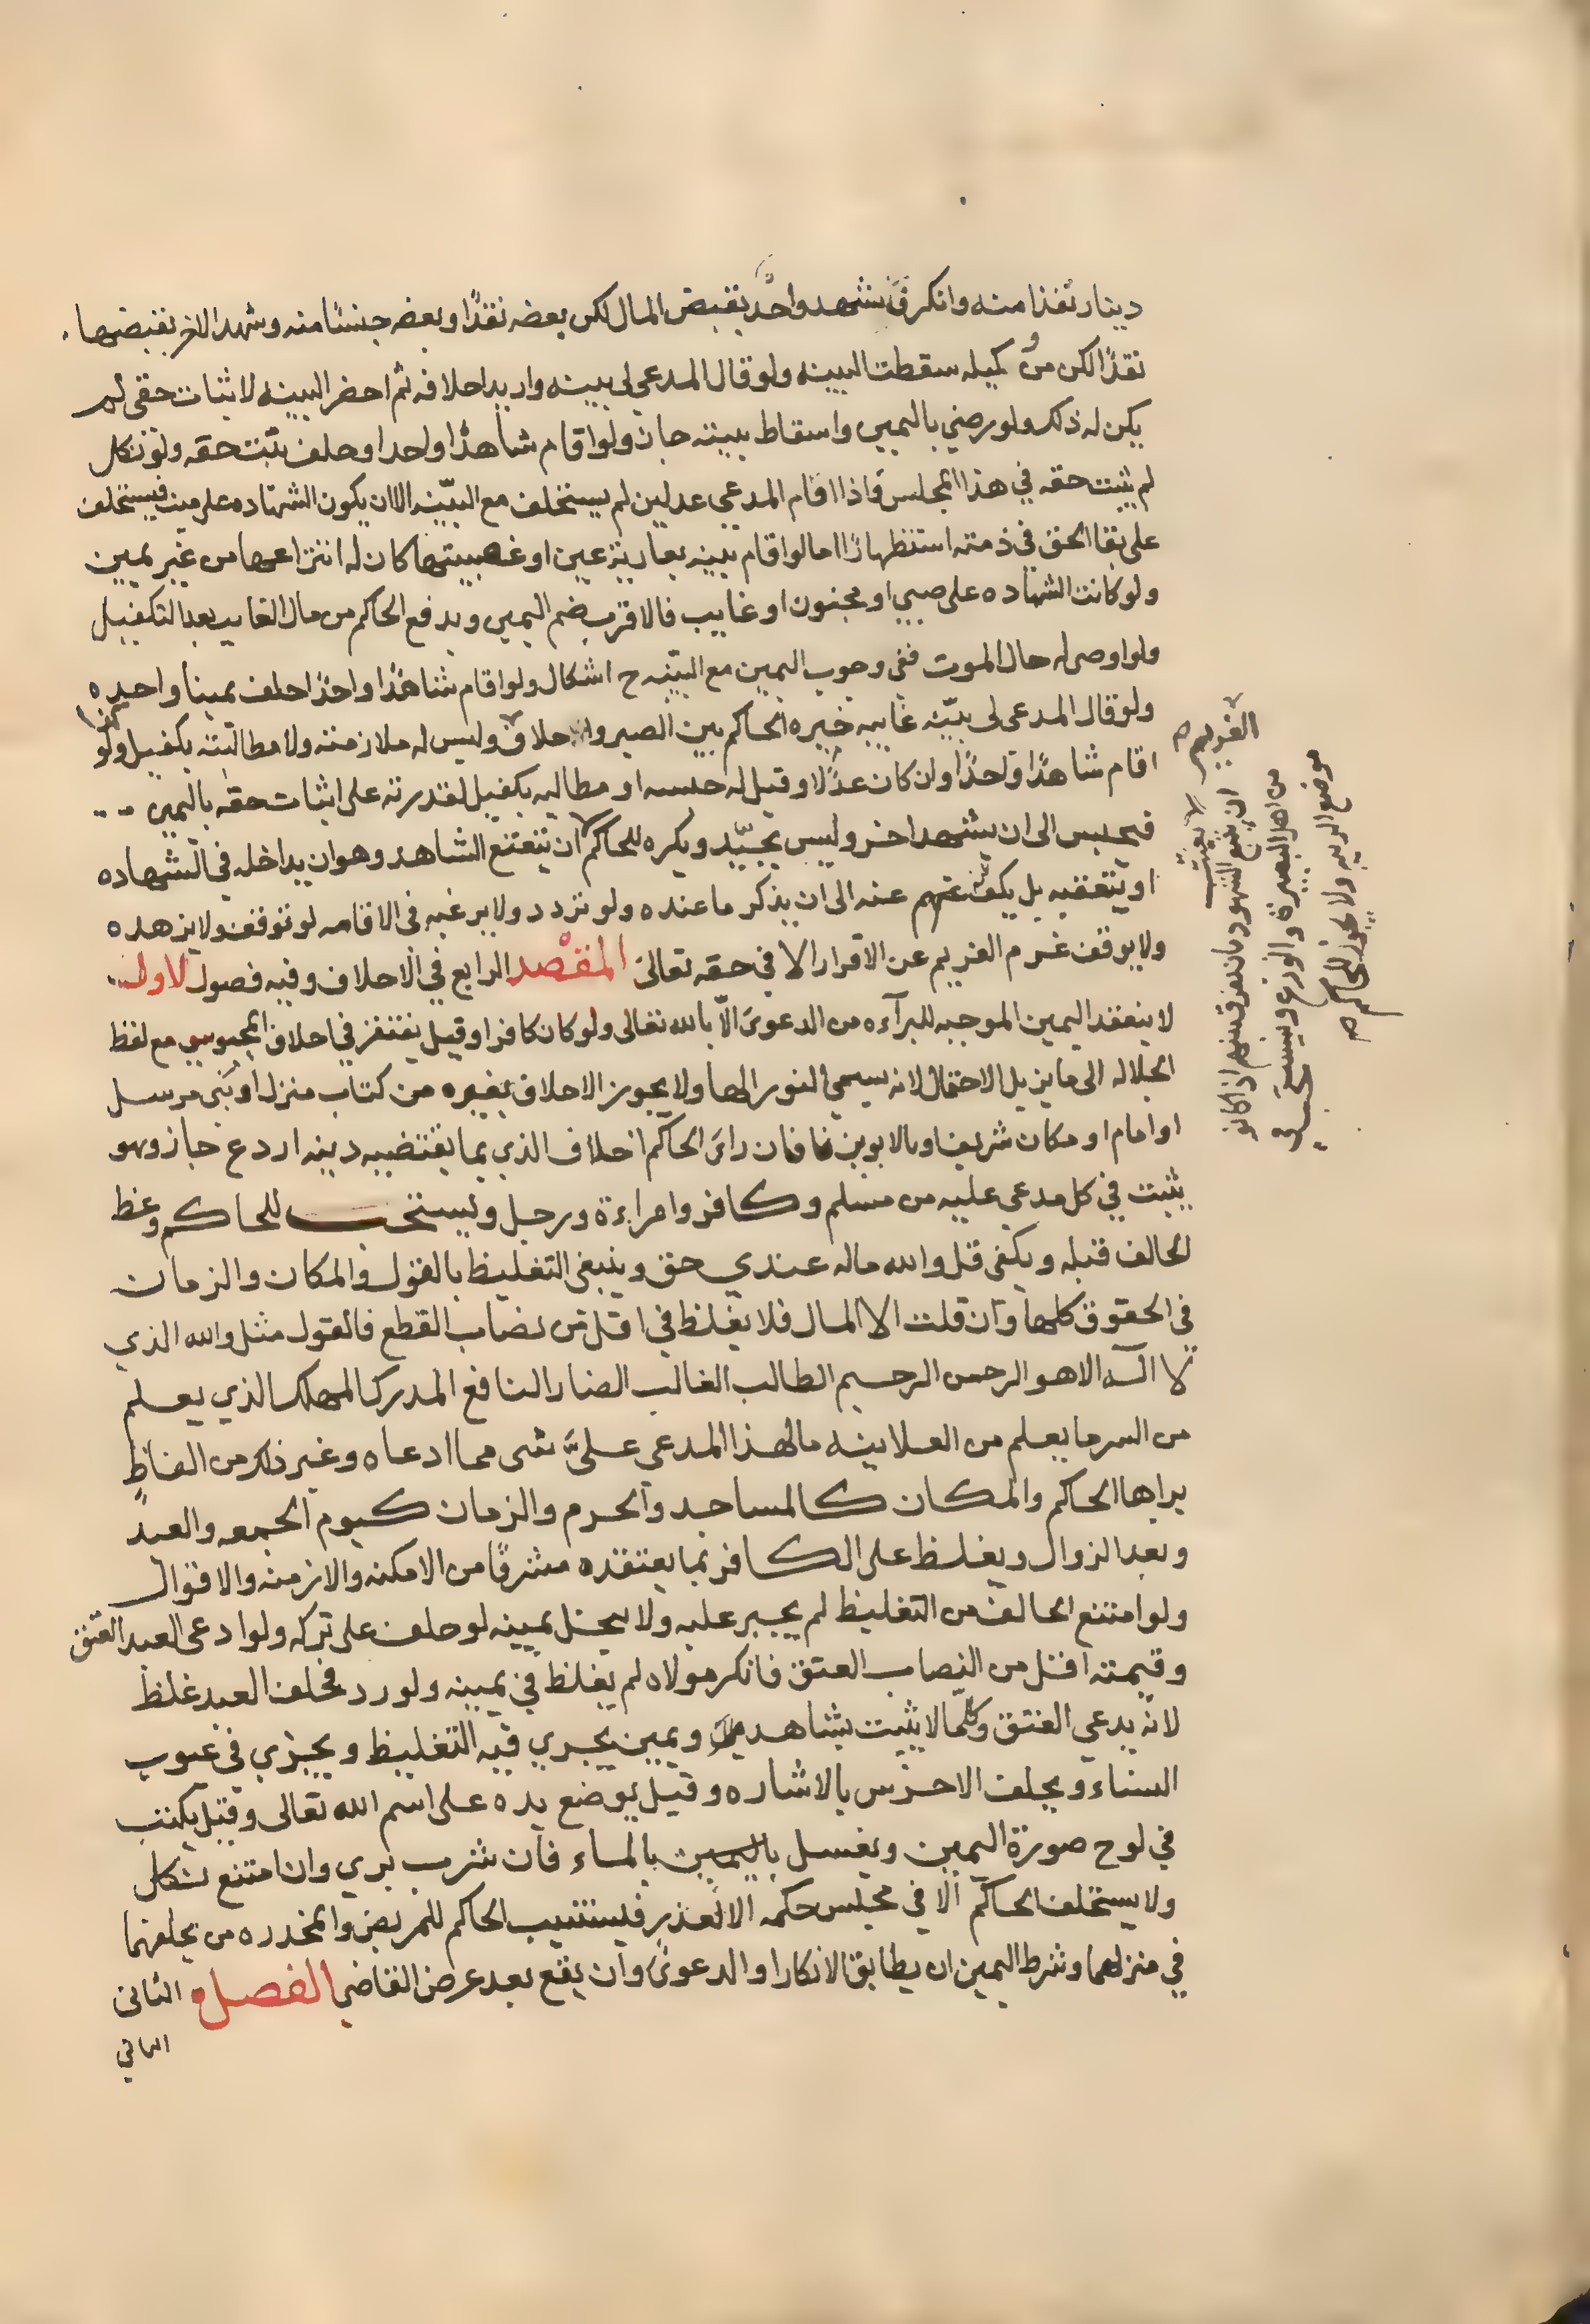 دينار نقدا منه وانكر فشهد واحد بقبض المال لكن بعضه نقدًا وبعضه جنسًا منه وشهد الاخر بقبضها
نقدًا لكن من وكيله سقطت البينه ولو قال المدعي لي بينه واريد احلافه ثم احضر البينه لاثبات حقي لم
يكن له ذلك ولو رضي باليمين واسقاط بينته جاز ولو اقام شاهدًا واحدا وحلف يثبت حقه ولو نكل
لم يثبت حقه في هذا المجلس واذا اقام المدعي عدلين لم يستحلف مع البيّنه الا ان يكون الشهاده على ميت فيستحلف
على بقا الحق في ذمته استظهارًا اما لو اقام بينه بعارية عين او غصبيتها كان له انتزاعها من غير يمين
ولو كانت الشهاده على صبي او مجنون او غايب فالاقرب ضم اليمين ويدفع الحاكم من مال الغايب بعد التكفيل
ولو اوصى له حال الموت ففي وجوب اليمين مع البيّنه ح اشكال ولو اقام شاهدًا واحدًا احلف يمينا واحده
ولو قال المدعي لي بيّنه غايبه خيره الحاكم بين الصبر واحلاف وليس له ملازمته ولا مطالبته بكفيل ولو
اقام شاهدًا واحدًا وان كان عدلا وقيل له حبسه او مطالبه بكفيل لقدرته على اثبات حقه باليمين
فيحبس الى ان يشهد اخر وليس بجيّد ويكره للحاكم ان يتعتع الشاهد وهو ان يداخله في الشهاده
او يتعقبه بل يكف عنه الى ان يذكر ما عنده ولو تردد ولا يرغبه في الاقامه لو توقف ولا يزهده
ولا يوقف غرم الغريم عن الاقرار الا في حقه تعالى المقصد الرابع في الاحلاف وفيه فصول لاول
لا ينعقد اليمين الموجبه للبرآءه من الدعوى الّا بالله تعالى ولو كان كافرا وقيل يفتقر في احلاف المجوسي مع لفظ
الجلاله الى ما يزيل الاحتمال لانه سيمي النور الها ولا يجوز الاحلاف بغيره من كتاب منزل او نبي مرسل
او امام او مكان شريف او بالابوين فان راى الحاكم احلاف الذي بما يقتضيه دينه اردع جاز وهو
يثبت في كل مدعي عليه من مسلم وكافر وامراءة ورجل ويستحب للحاكم وعظ
الحالف قبله ويكفي قل والله ماله عندي حق وينبغي التغليظ بالقول والمكان والزمان
في الحقوق كلها وان قلت الا المال فلا يغلظ في اقل من نصاب القطع فالقول مثل والله الذي
لا اله الا هو الرحمن الرحيم الطالب الغالب الضار النافع المدرك المهلك الذي يعلم
من السر ما يعلم من العلانيه ما لهذا المدعي عليَّ شى مما ادعاه وغير ذلك من الفاظ
يراها الحاكم والمكان كالمساجد والحرم والزمان كيوم الجمعه والعيد
وبعد الزوال ويغلظ على الكافر بما يعتقده مشرفًا من الامكنه والازمنه والاقوال
ولو امتنع الحالف من التغليظ لم يجبر عليه ولا يحنل يمينه لو حلف على تركه ولو ادعى العبد العتق
وقيمته اقل من النصاب العتق فانكر مولاه لم يغلظ في يمينه ولو رد فحلف العبد غلظ
لانه يدعي العتق وكلما لا يثبت بشاهد ويمين يجري فيه التغليظ ويجزي في عيوب
النساء ويحلف الاخرس بالاشاره وقيل يوضع يده على اسم الله تعالى وقيل يكتب
في لوح صورة اليمين ويغسل باليمين بالماء فان شرب بري وان امتنع نكل
ولا يستحلف الحاكم الا في مجلس حكمه الا لعذر فيستنيب الحاكم للمريض والمخدره من يحلفهما
في منزلهما وشرط اليمين ان يطابق الانكار او الدعوى وان يقع بعد عرض القاضي الفصل الثانى
الثاني
الغريم
ان يتبع الشهود بان يفرق بينهم اذا كانو
من اهل البصيرة والورع ويستحب في
موضع الريبه ولا يجوز للحاكم